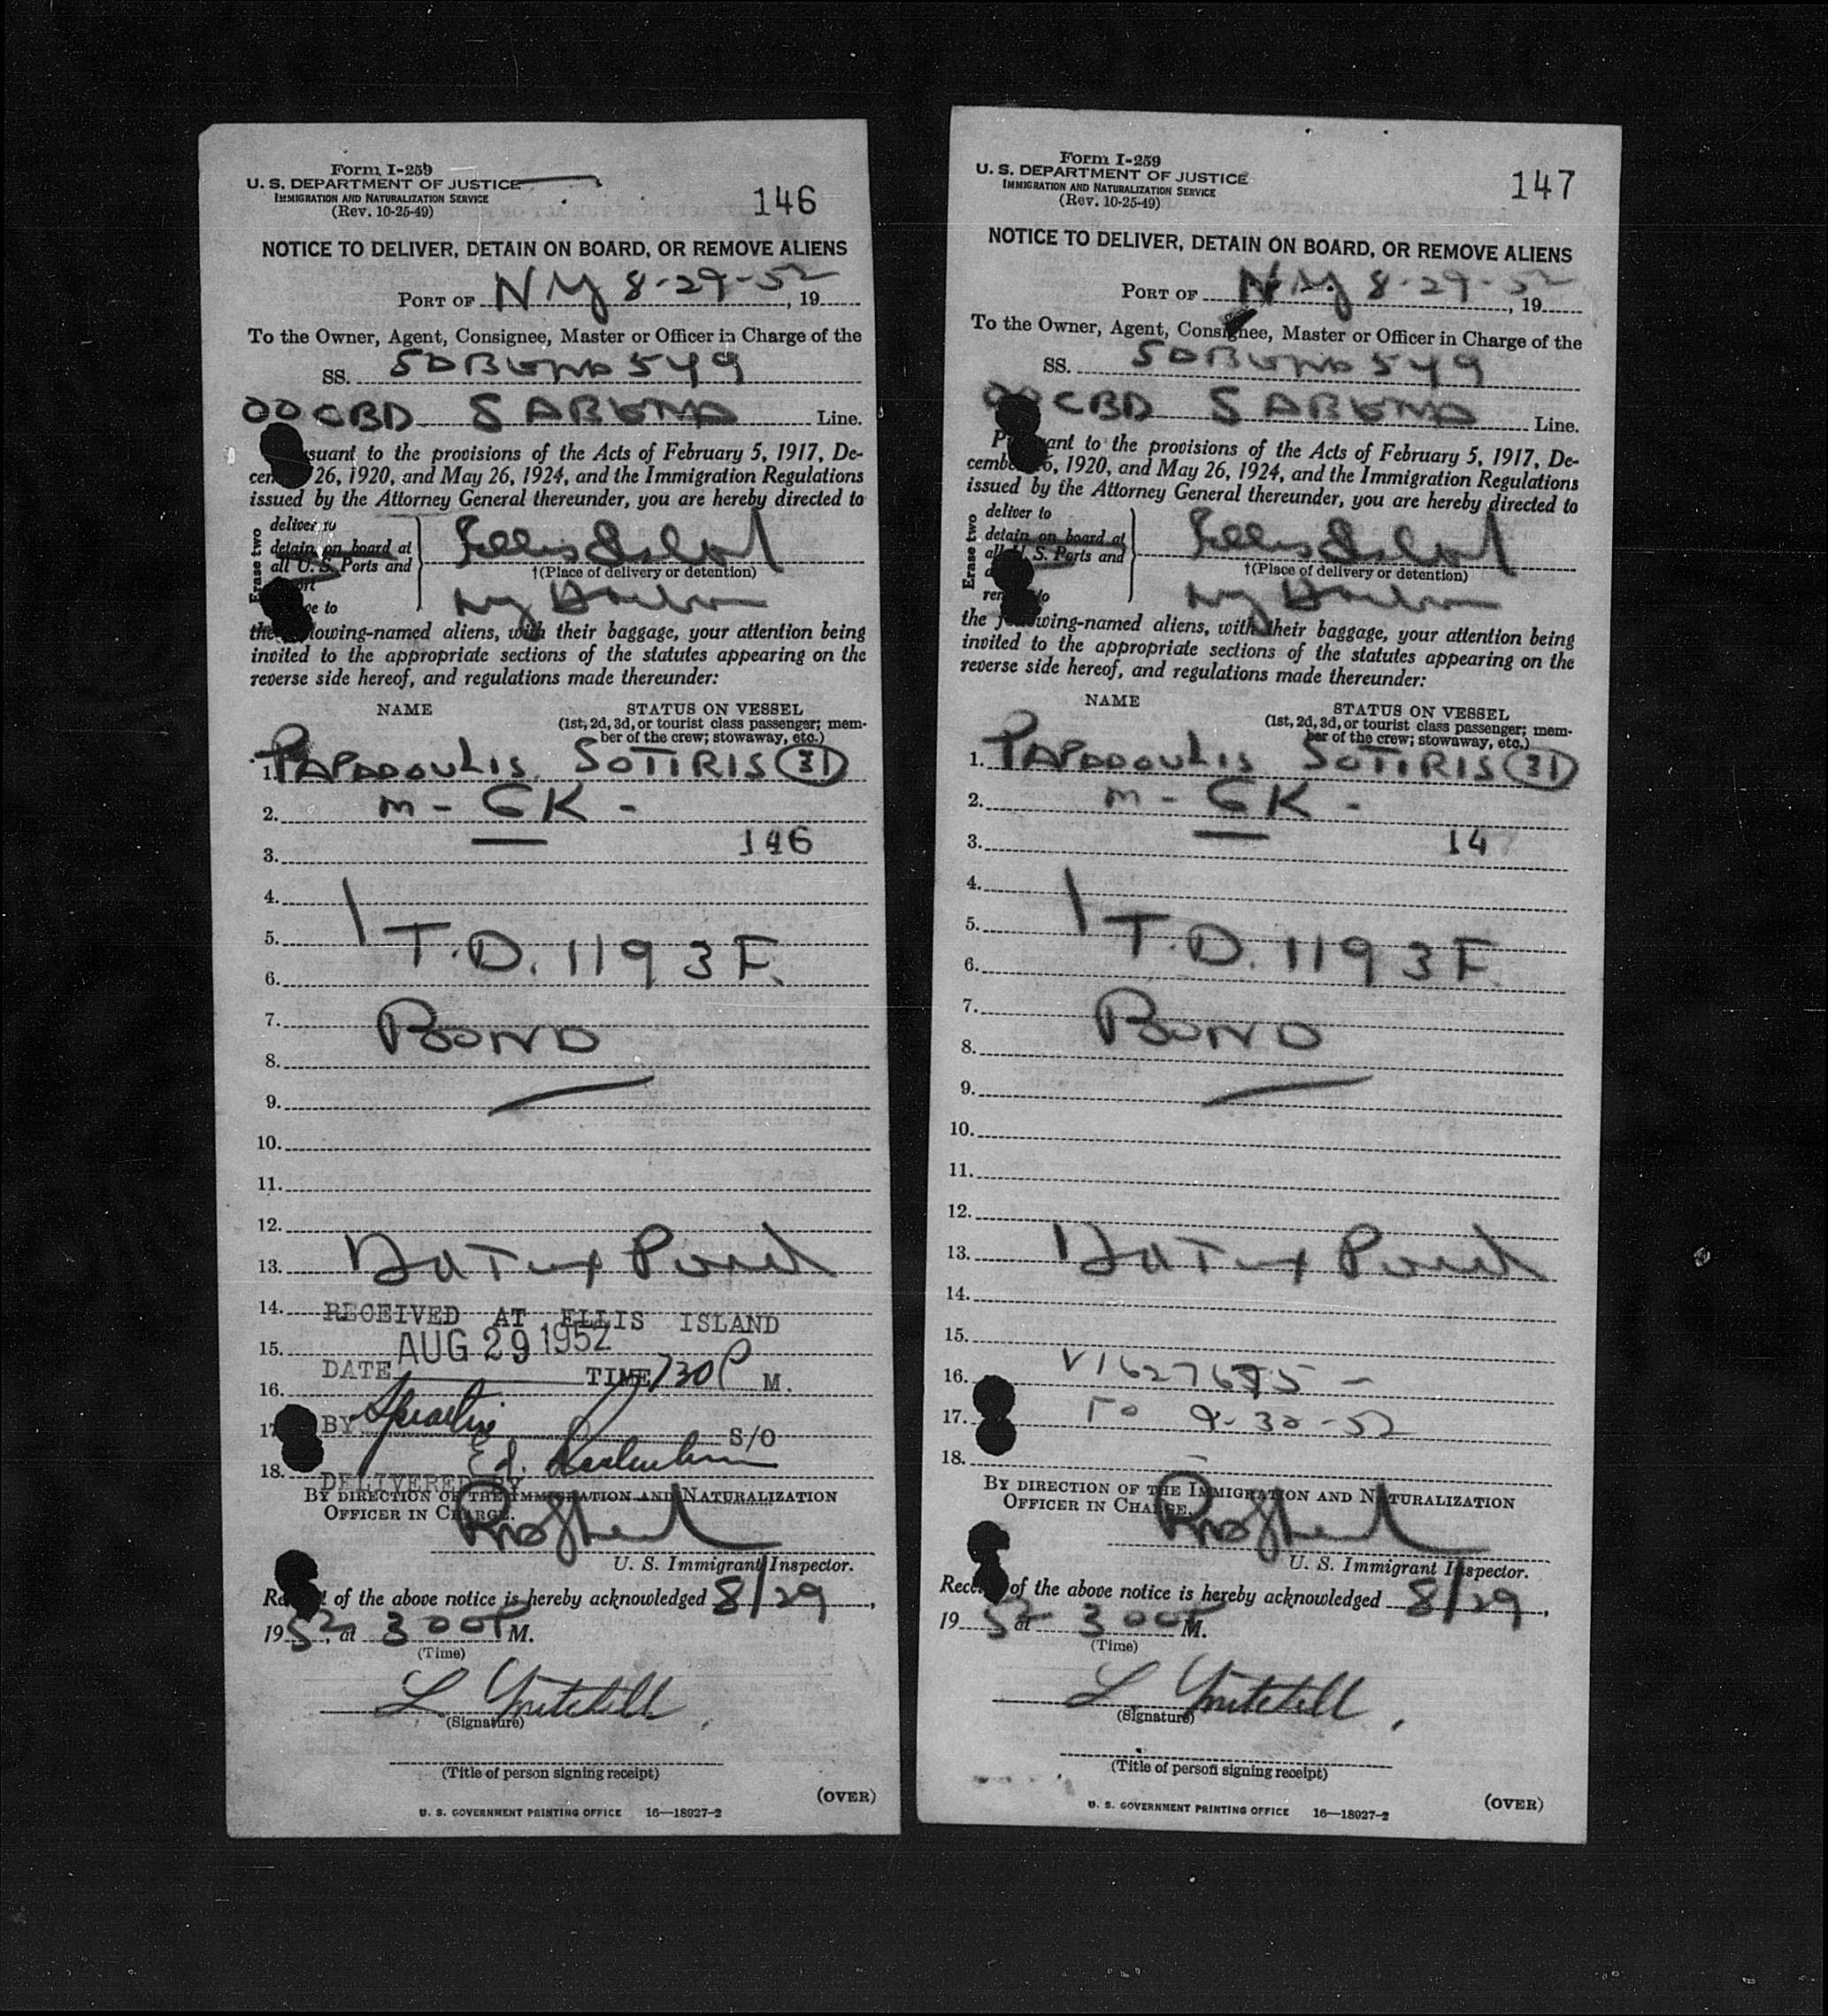 Form I-259
U. S. DEPARTMENT OF JUSTICE
IMMIGRATION AND NATURALIZATION SERVICE
(Rev. 10-25-49)
146
NOTICE TO DELIVER, DETAIN ON BOARD, OR REMOVE ALIENS
PORT OF NY 8-29-52, 19
To the Owner, Agent, Consignee, Master or Officer in Charge of the
SS. SABENA 549
OOCBD SABENA Line.
suant to the provisions of the Acts of February 5, 1917, De-
cem 26, 1920, and May 26, 1924, and the Immigration Regulations
issued by the Attorney General thereunder, you are hereby directed to
Erase two
deliver to
detain on board at
all U. S. Ports and
ort
e to
Ellis Island
†(Place of delivery or detention)
NY Harbor
the lowing-named aliens, with their baggage, your attention being
invited to the appropriate sections of the statutes appearing on the
reverse side hereof, and regulations made thereunder:
NAME
STATUS ON VESSEL
(1st, 2d, 3d, or tourist class passenger; mem-
ber of the crew; stowaway, etc.)
1. PAPADOULIS SOTIRIS 31
2. m - GK -
3. 146
4.
5. T.D. 1193F.
6.
7. BOND
8.
9.
10.
11.
12.
13.
14. RECEIVED AT ELLIS ISLAND
15. AUG 29 1952
DATE TIME 730 P M.
16.
17 BY S/O
Ed.
18. DELIVERED BY
BY DIRECTION OF THE IMMIGRATION AND NATURALIZATION
OFFICER IN CHARGE.
U. S. Immigrant Inspector.
Re t of the above notice is hereby acknowledged 8/29,
1952, at 300P M.
(Time)
L Mitchell
(Signature)
(Title of person signing receipt)
(OVER)
U. S. GOVERNMENT PRINTING OFFICE 16—18927-2
Form I-259
U. S. DEPARTMENT OF JUSTICE
IMMIGRATION AND NATURALIZATION SERVICE
(Rev. 10-25-49)
147
NOTICE TO DELIVER, DETAIN ON BOARD, OR REMOVE ALIENS
PORT OF NY 8-29-52, 19
To the Owner, Agent, Consignee, Master or Officer in Charge of the
SS. SABENA 549
OOCBD SABENA Line.
P ant to the provisions of the Acts of February 5, 1917, De-
cembe 6, 1920, and May 26, 1924, and the Immigration Regulations
issued by the Attorney General thereunder, you are hereby directed to
Erase two
deliver to
detain on board at
all U. S. Ports and
a
rem to
Ellis Island
†(Place of delivery or detention)
NY Harbor
the f wing-named aliens, with their baggage, your attention being
invited to the appropriate sections of the statutes appearing on the
reverse side hereof, and regulations made thereunder:
NAME
STATUS ON VESSEL
(1st, 2d, 3d, or tourist class passenger; mem-
ber of the crew; stowaway, etc.)
1. PAPADOULIS SOTIRIS 31
2. m - GK -
3. 147
4.
5. T.D. 1193F
6.
7. BOND
8.
9.
10.
11.
12.
13.
14.
15.
16. V1627675 -
17. To 9-30-52
18.
BY DIRECTION OF THE IMMIGRATION AND NATURALIZATION
OFFICER IN CHARGE.
U. S. Immigrant Inspector.
Rece of the above notice is hereby acknowledged 8/29,
1952 at 300P M.
(Time)
L Mitchell
(Signature)
(Title of person signing receipt)
(OVER)
U. S. GOVERNMENT PRINTING OFFICE 16—18927-2